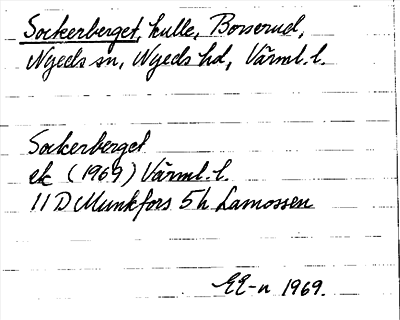 Sockerberget, kulle, Borserud,
Nyeds sn, Nyeds hd, Värml. l.
Sockerberget
ek (1969) Värml. l.
11 D Munkfors 5 h Lamossen
EE-n 1969.